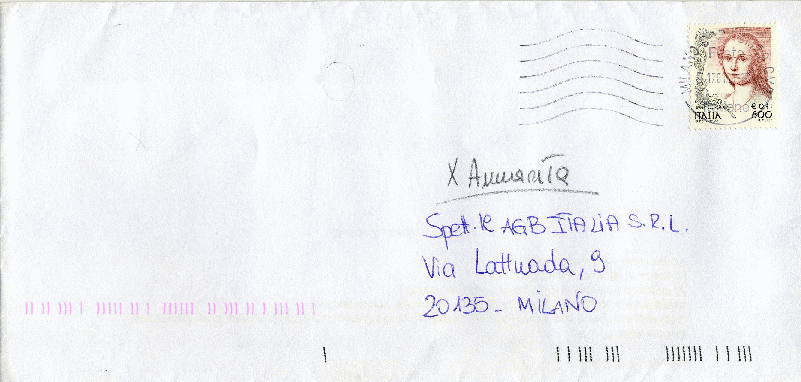 MILANO
ITALIA
600
X Annarita
Spett.le AGB ITALIA S.R.L.
Via Lattuada, 9
20135 - MILANO